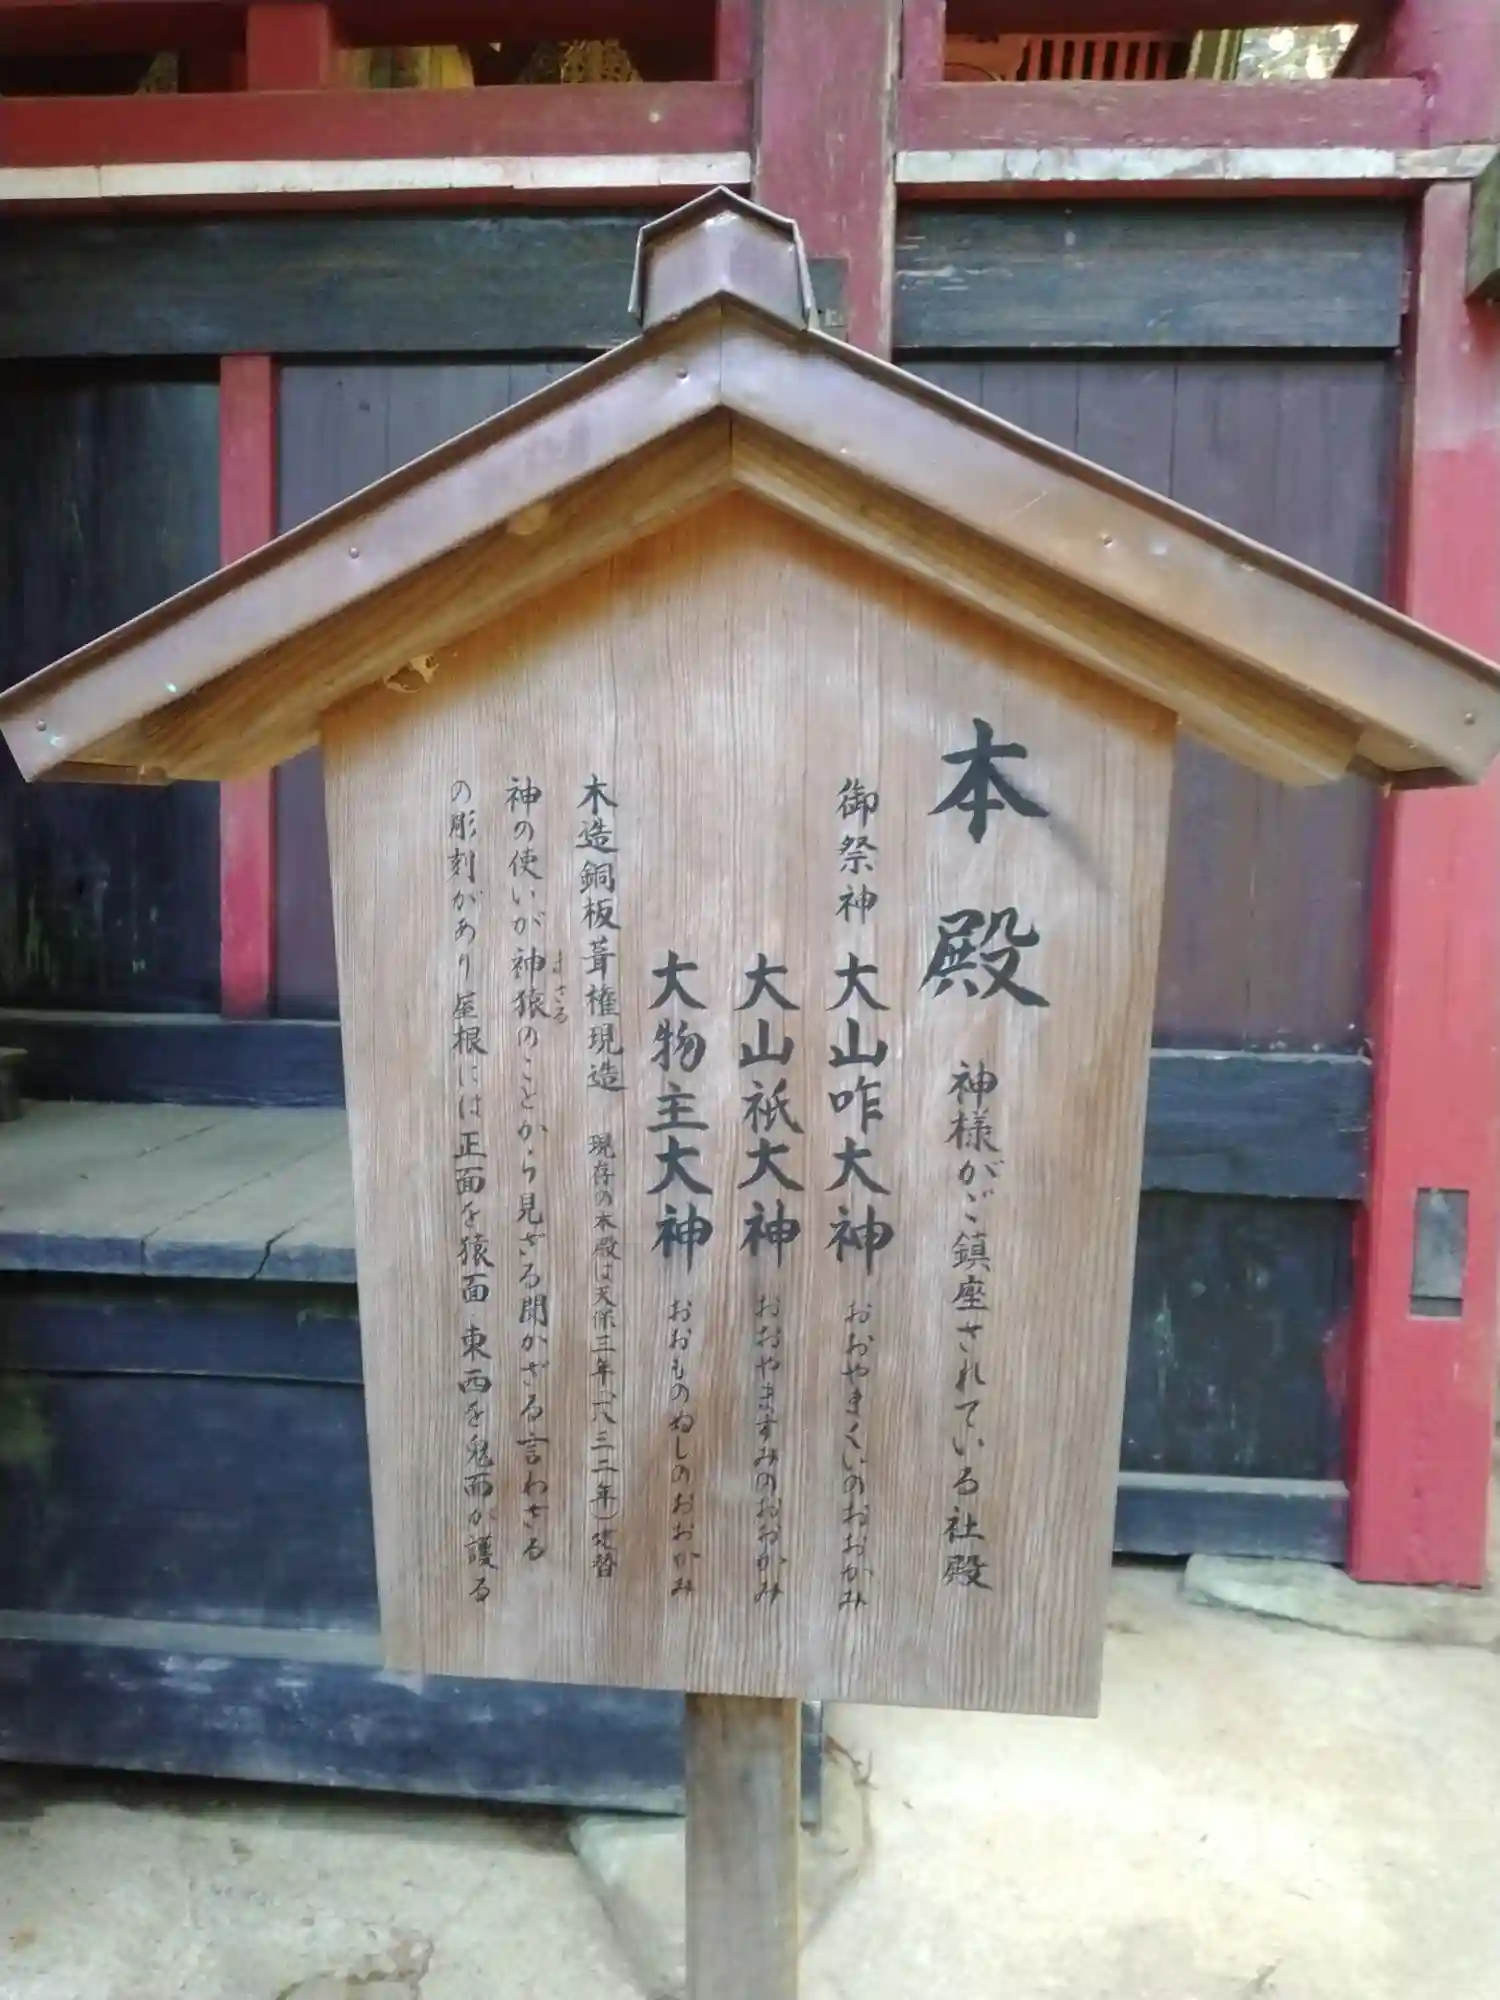 本殿 神様がご鎮座されている社殿
御祭神 大山咋大神 おおやまくいのおおかみ
大山祇大神 おおやますみのおおかみ
大物主大神 おおものぬしのおおかみ
木造銅板葺権現造 現存の本殿は天保三年(一八三二年)建替
神の使いが神猿のことから見ざる聞かざる言わざる
まさる
の彫刻があり屋根には正面を猿面・東西を鬼面が護る